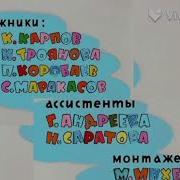 жники:
К. КАРПОВ
И. ТРОЯНОВА
П. КОРОБАЕВ
С. МАРАКАСОВ
ассистенты
Г. АНДРЕЕВА
Н. САРАТОВА
монтаже
М. МИХЕ